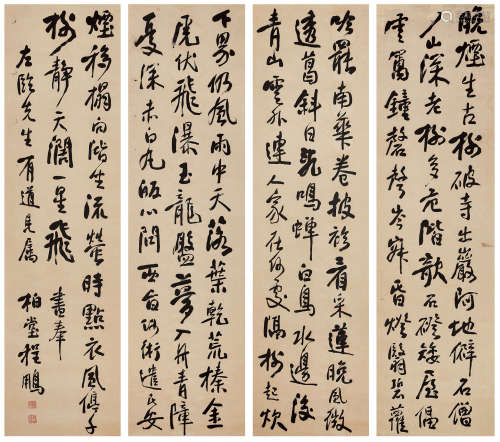 晚煙生古樹破寺出巖阿地僻僧
入山深老樹多危階欹石磴矮屋傴
雲窩鐘磬聲岑寂昏燈翳碧蘿
吟罷南華卷披襟看采蓮晚風微
透葛斜日亂鳴蟬白鳥水邊沒
青山雲外連人家在何處隔樹起炊
下界仍風雨中天落葉乾荒榛金
虎伏飛瀑玉龍盤夢入丹青障
深赤白丸心關西何術遣民安
煙移榻向階坐流螢時點衣風千
樹靜天闊一星飛 書奉
左臨先生有道見屬
柏堂程鵬